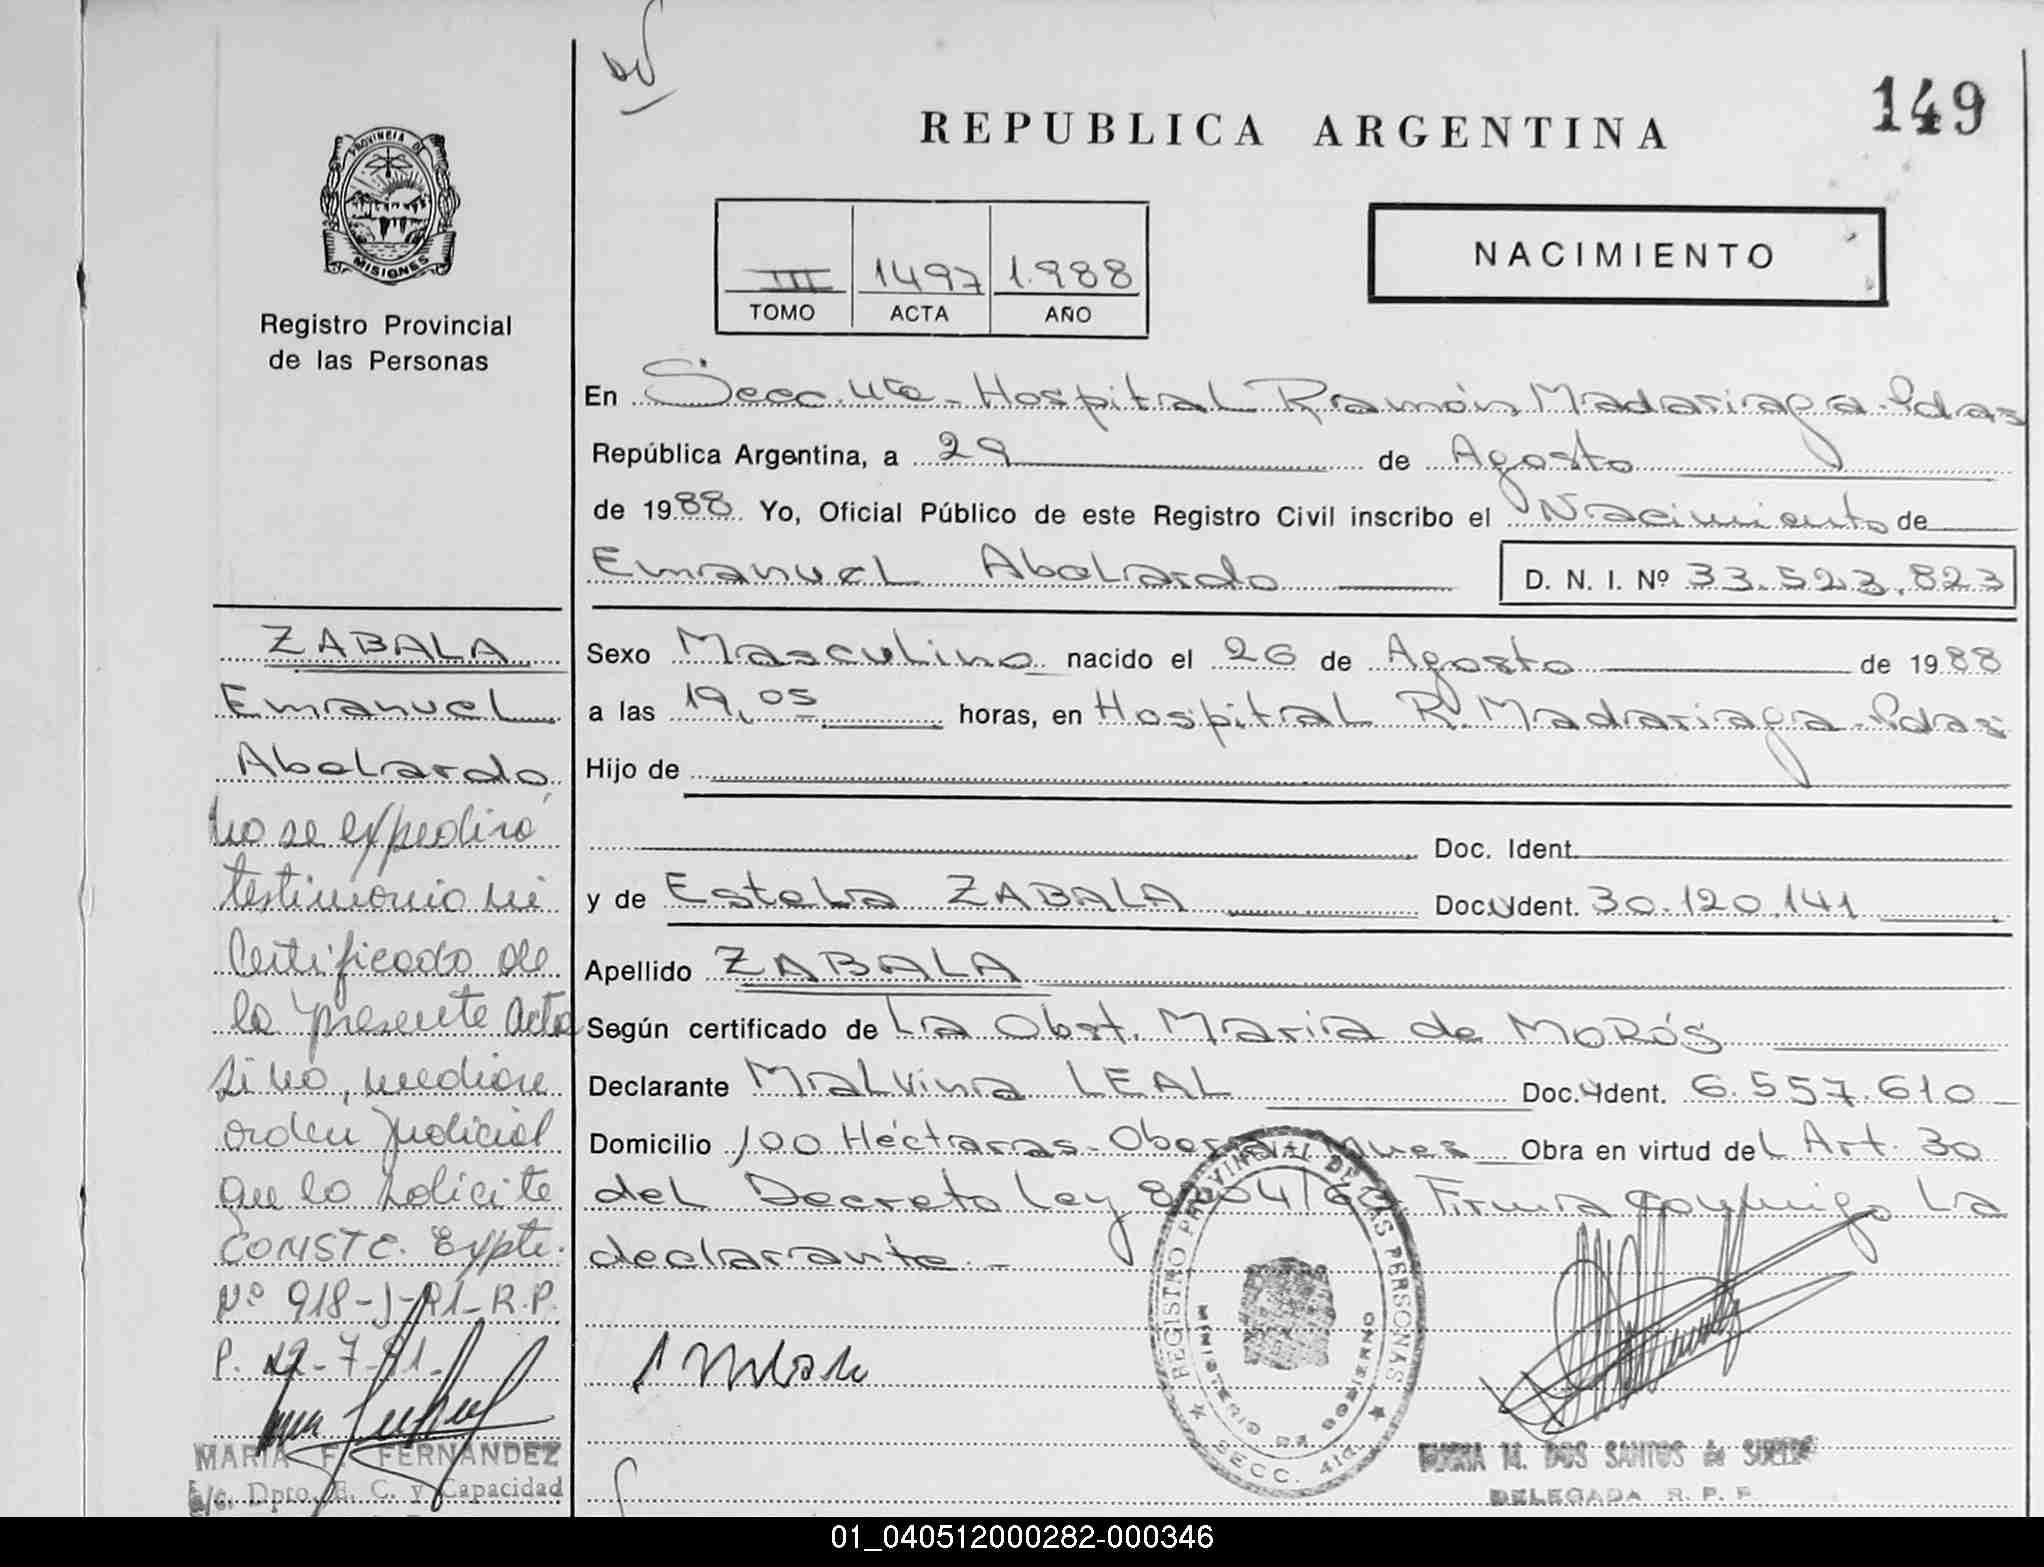 149
REPUBLICA ARGENTINA
PROVINCIA DE
MISIONES
Registro Provincial
de las Personas
NACIMIENTO
III 1497 1.988
TOMO ACTA AÑO
En Secc. 4ta - Hospital Ramón Madariaga - Pdas
República Argentina, a 29 de Agosto
de 1988 Yo, Oficial Público de este Registro Civil inscribo el Nacimiento de
Emanuel Abelardo
D. N. I. Nº 33.523.823
Sexo Masculino nacido el 26 de Agosto de 1988
a las 19,05 horas, en Hospital R. Madariaga - Pdas
Hijo de
Doc. Ident.
y de Estela ZABALA Doc. Ident. 30.120.141
Apellido ZABALA
Según certificado de La Obst. Maria de MOROS
Declarante Malvina LEAL Doc. Ident. 6.557.610
Domicilio 100 Héctaras - Oberá Obra en virtud del Art. 30
del Decreto Ley Firma conmigo la
declarante. -
ZABALA
Emanuel
Abelardo
No se expedirá
testimonio ni
Certificado de
la presente acta
si no, mediare
orden judicial
que lo solicite
CONSTE. Expte.
Nº 918-J-91-R.P.
P. 22-7-91-
MARIA F. FERNANDEZ
a/c. Dpto. E. C. y Capacidad
REGISTRO PROVINCIAL DE LAS PERSONAS
MINISTERIO DE GOBIERNO
SECC. 4ta
M. DOS SANTOS de
DELEGADA R. P. P.
01_040512000282-000346